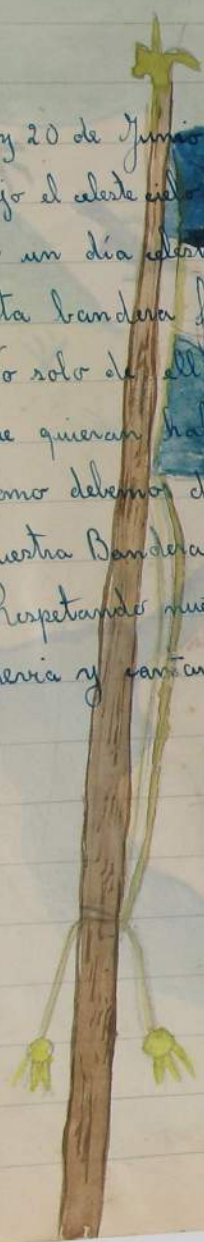 y 20 de Junio
jo el celeste cielo
un día celest
ta bandera f
o solo de ell
ue quieran hab
omo debemos d
uestra Bandera
Respetando nue
eria y cantan